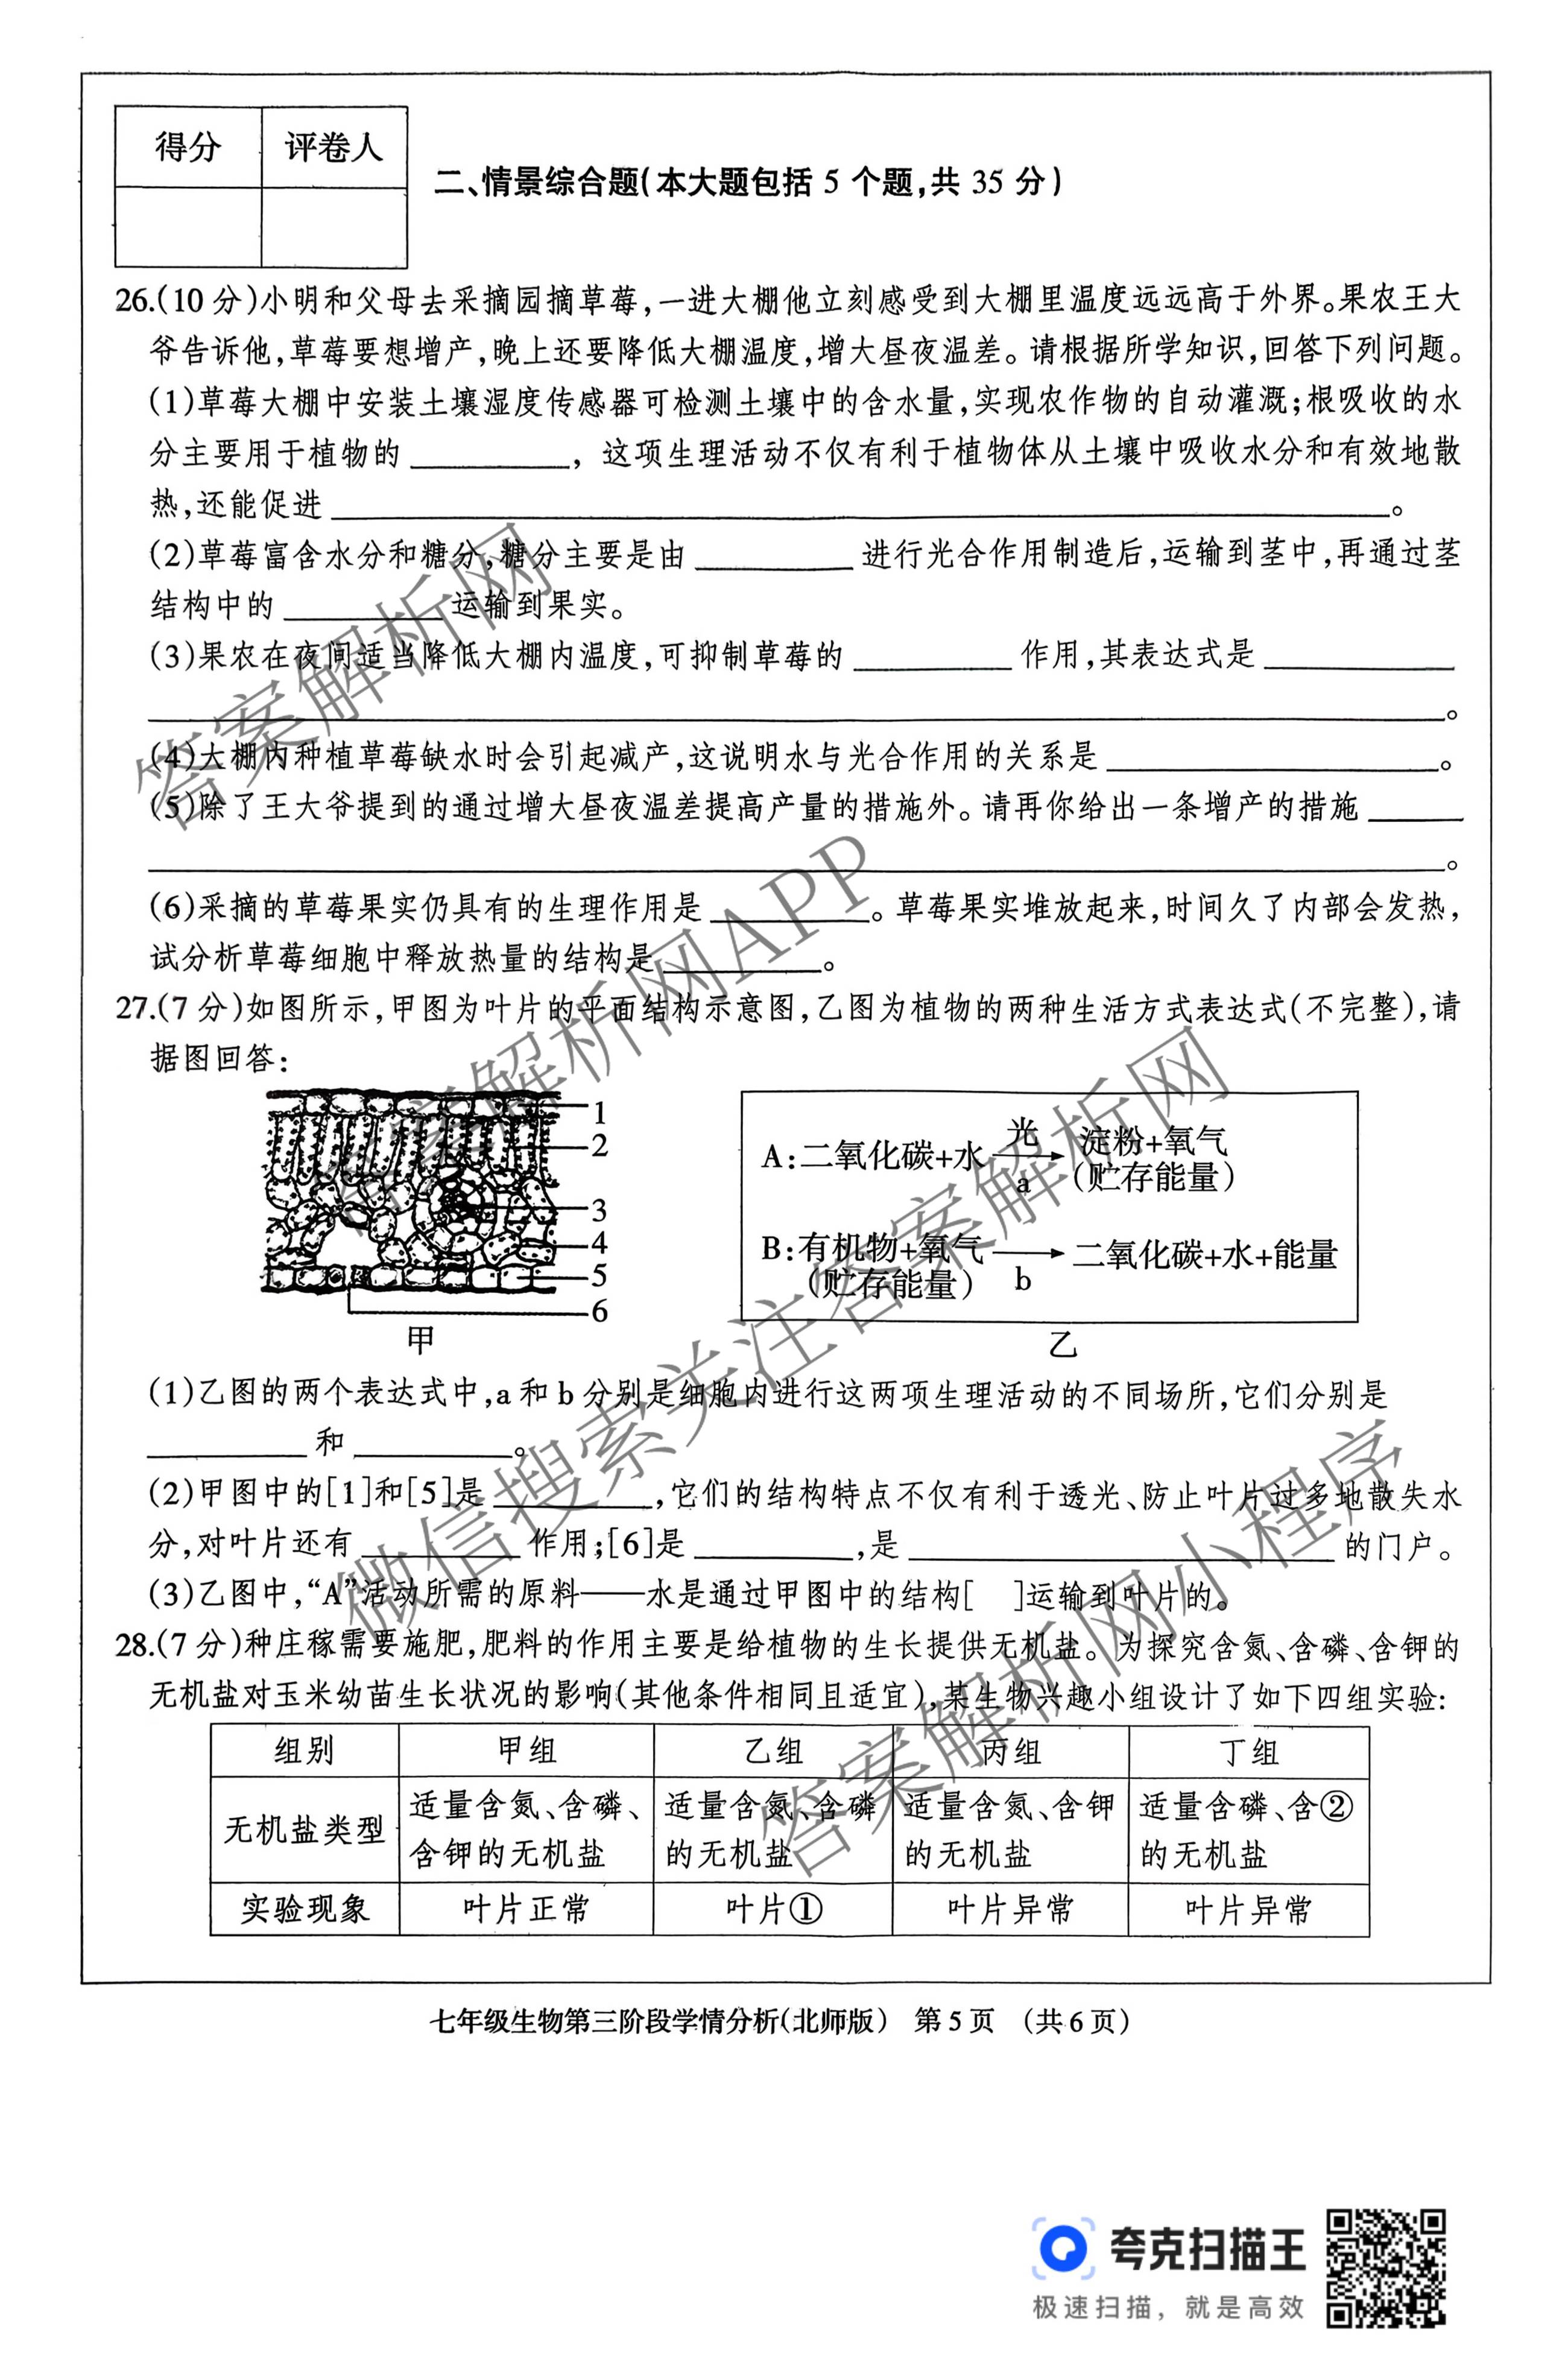 得分 评卷人
二、情景综合题(本大题包括 5 个题,共 35 分)
26.(10 分)小明和父母去采摘园摘草莓,一进大棚他立刻感受到大棚里温度远远高于外界。果农王大
爷告诉他,草莓要想增产,晚上还要降低大棚温度,增大昼夜温差。请根据所学知识,回答下列问题。
(1)草莓大棚中安装土壤湿度传感器可检测土壤中的含水量,实现农作物的自动灌溉;根吸收的水
分主要用于植物的__________,这项生理活动不仅有利于植物体从土壤中吸收水分和有效地散
热,还能促进__________。
(2)草莓富含水分和糖分,糖分主要是由__________进行光合作用制造后,运输到茎中,再通过茎
结构中的__________运输到果实。
(3)果农在夜间适当降低大棚内温度,可抑制草莓的__________作用,其表达式是__________
__________。
(4)大棚内种植草莓缺水时会引起减产,这说明水与光合作用的关系是__________。
(5)除了王大爷提到的通过增大昼夜温差提高产量的措施外。请再你给出一条增产的措施______
__________。
(6)采摘的草莓果实仍具有的生理作用是__________。草莓果实堆放起来,时间久了内部会发热,
试分析草莓细胞中释放热量的结构是__________。
27.(7 分)如图所示,甲图为叶片的平面结构示意图,乙图为植物的两种生活方式表达式(不完整),请
据图回答:
1
2
3
4
5
6
甲
A:二氧化碳+水 光 a 淀粉+氧气
(贮存能量)
B:有机物+氧气 b 二氧化碳+水+能量
(贮存能量)
乙
(1)乙图的两个表达式中,a 和 b 分别是细胞内进行这两项生理活动的不同场所,它们分别是
__________和__________。
(2)甲图中的[1]和[5]是__________,它们的结构特点不仅有利于透光、防止叶片过多地散失水
分,对叶片还有__________作用;[6]是__________,是__________的门户。
(3)乙图中,“A”活动所需的原料——水是通过甲图中的结构[ ]运输到叶片的。
28.(7 分)种庄稼需要施肥,肥料的作用主要是给植物的生长提供无机盐。为探究含氮、含磷、含钾的
无机盐对玉米幼苗生长状况的影响(其他条件相同且适宜),某生物兴趣小组设计了如下四组实验:
组别 甲组 乙组 丙组 丁组
无机盐类型 适量含氮、含磷、含钾的无机盐 适量含氮、含磷的无机盐 适量含氮、含钾的无机盐 适量含磷、含②的无机盐
实验现象 叶片正常 叶片① 叶片异常 叶片异常
七年级生物第三阶段学情分析(北师版) 第 5 页 (共 6 页)
答案解析网
答案解析网APP
微信搜索关注答案解析网
答案解析网小程序
夸克扫描王
极速扫描,就是高效